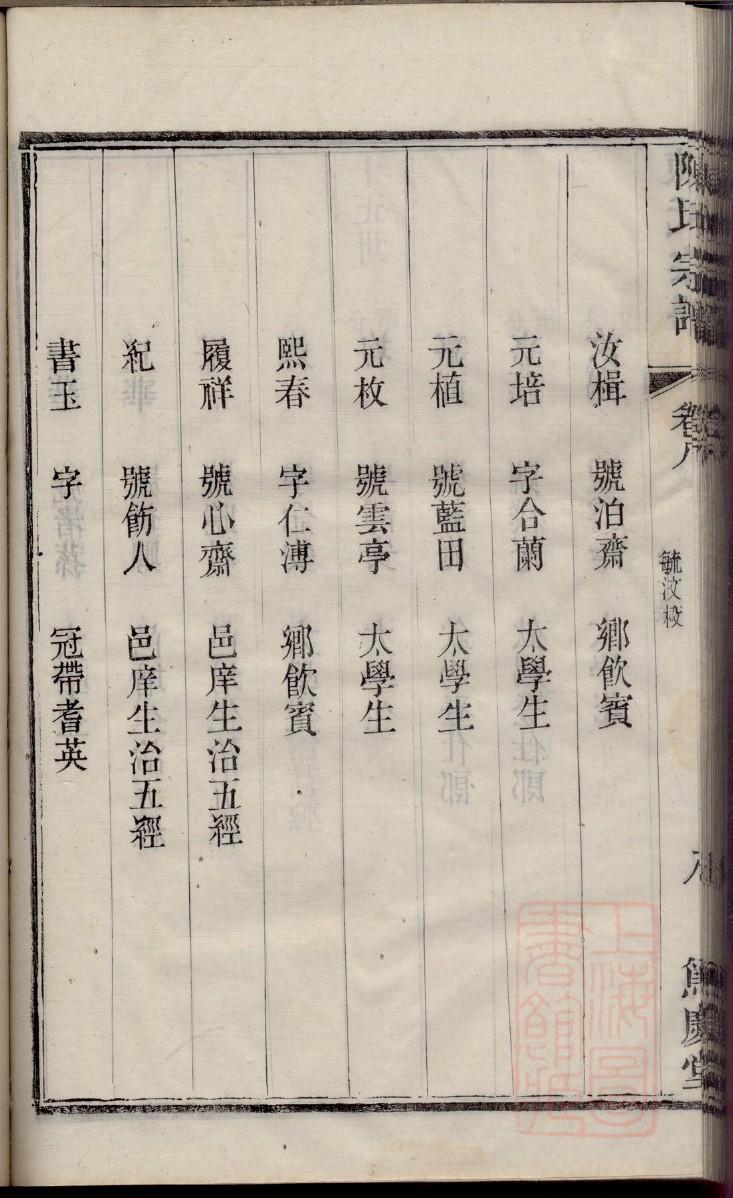 陳氏宗譜
毓汶校
汝楫 號泊齋 鄉飲賓
元培 字合蘭 太學生
元植 號藍田 太學生
元枚 號雲亭 太學生
熙春 字仁溥 鄉飲賓
履祥 號心齋 邑庠生治五經
紀 號飭人 邑庠生治五經
書玉 字 冠帶耆英
上海圖書館藏